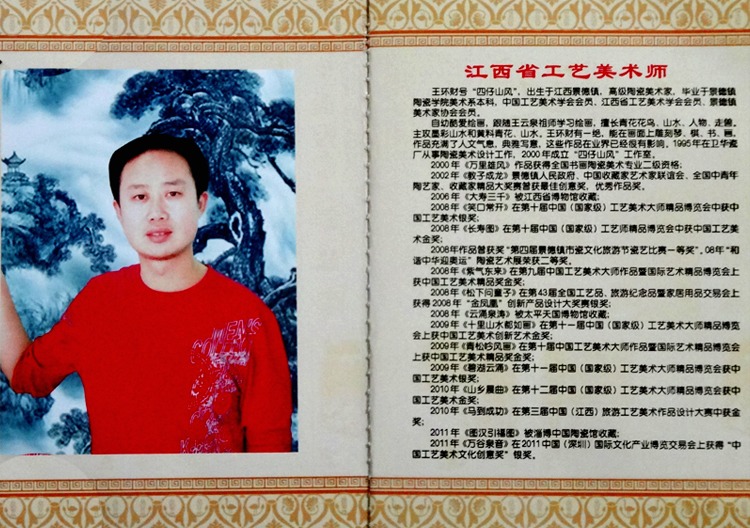 江西省工艺美术师
王环财号“四仔山风”，出生于江西景德镇，高级陶瓷美术家，毕业于景德镇
陶瓷学院美术系本科，中国工艺美术学会会员，江西省工艺美术学会会员，景德镇
美术家协会会员。
自幼酷爱绘画，跟随王云泉祖师学习绘画，擅长青花花鸟、山水、人物、走兽。
主攻墨彩山水和黄料青花、山水。王环财有一绝，能在画面上雕刻琴、棋、书、画，
作品充满了人文气息，典雅写意，这些作品在业界已经很有影响。1995年在卫华瓷
厂从事陶瓷美术设计工作，2000年成立“四仔山风”工作室。
2000年《万里雄风》作品获得全国书画陶瓷美术专业二级资格；
2002年《教子成龙》景德镇人民政府、中国收藏家艺术家联谊会、全国中青年
陶艺家、收藏家精品大奖赛曾获最佳创意奖，优秀作品奖。
2006年《大寿三千》被江西省博物馆收藏；
2008年《笑口常开》在第十届中国（国家级）工艺美术大师精品博览会中获中
国工艺美术银奖；
2008年《长寿图》在第十届中国（国家级）工艺师精品博览会中获中国工艺美
术金奖；
2008年作品曾获奖“第四届景德镇市瓷文化旅游节瓷艺比赛一等奖”。08年“和
谐中华迎奥运”陶瓷艺术展荣获二等奖。
2008年《紫气东来》在第九届中国工艺美术大师作品暨国际艺术精品博览会上
获中国工艺美术精品奖金奖；
2008年《松下问童子》在第43届全国工艺品、旅游纪念品暨家居用品交易会上
获得2008年“金凤凰”创新产品设计大奖赛银奖；
2008年《云涌泉涛》被太平天国博物馆收藏；
2009年《十里山水都如画》在第十一届中国（国家级）工艺美术大师精品博览
会上获中国工艺美术创新艺术金奖；
2009年《青松吟风画》在第十届中国工艺美术大师作品暨国际艺术精品博览会
上获中国工艺美术精品奖金奖；
2009年《碧湖云涌》在第十一届中国（国家级）工艺美术大师精品博览会获中
国工艺美术银奖；
2010年《山乡晨曲》在第十二届中国（国家级）工艺美术大师精品博览会获中
国工艺美术金奖；
2010年《马到成功》在第三届中国（江西）旅游工艺美术作品设计大赛中获金
奖；
2011年《图汉引福图》被淄博中国陶瓷馆收藏；
2011年《万谷泉音》在2011中国（深圳）国际文化产业博览交易会上获得“中
国工艺美术文化创意奖”银奖。